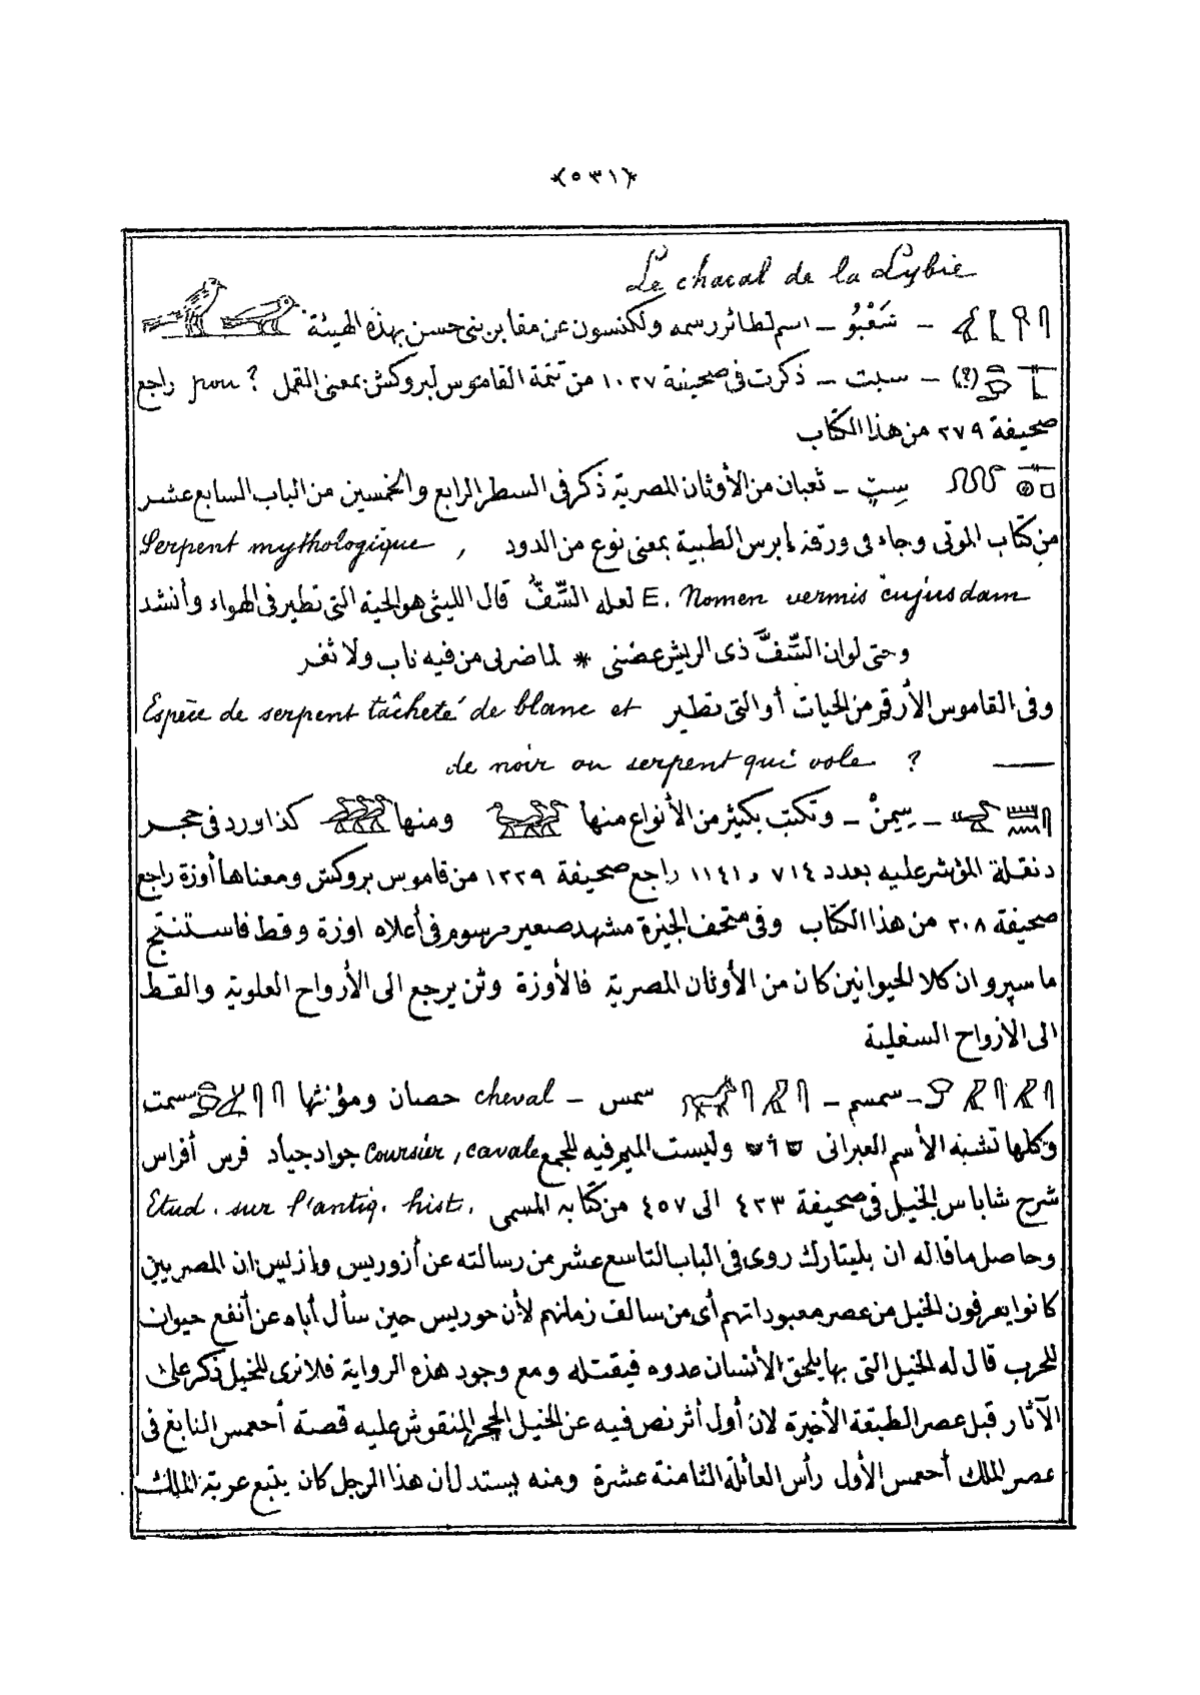 ﴿٥٣١﴾
Le chacal de la Lybie
— سَعْبُو — اسم لطائر رسمه ولكنسون عن مقابر بنى حسن بهذه الهيئة
(?) — سبت — ذكرت فى صحيفة ١٠٢٧ من تتمة القاموس لبروكش بمعنى القمل ? pou راجع
صحيفة ٢٧٩ من هذا الكتاب
سِبٖ — ثعبان من الأوثان المصرية ذكر فى السطر الرابع والخمسين من الباب السابع عشر
من كتاب الموتى وجاء فى ورقة إبرس الطبية بمعنى نوع من الدود , Serpent mythologique
E. Nomen vermis cujusdam لعله السِّفُّ قال الليثى هو الحية التى تطير فى الهواء وأنشد
وحتى لو ان السِّفَّ ذى الريش عضنى * لما ضرنى من فيه ناب ولا ثغر
وفى القاموس الأرقم من الحيات أو التى تطير Espèce de serpent tâcheté de blanc et
de noir ou serpent qui vole ?
— سِيمِنْ — وتكتب بكثير من الأنواع منها ومنها كذا ورد فى حجر
دنقلة المؤشر عليه بعدد ٧١٤ و ١١٤١ راجع صحيفة ١٢٢٩ من قاموس بروكش ومعناها أوزة راجع
صحيفة ٢٠٨ من هذا الكتاب وفى متحف الجيزة مشهد صغير مرسوم فى أعلاه اوزة وقط فاستنتج
ماسپرو ان كلا الحيوانين كان من الأوثان المصرية فالأوزة وثن يرجع الى الأرواح العلوية والقط
الى الأرواح السفلية
— سمسم — سمس — cheval حصان ومؤنثها سسمت
وكلها تشبه الأسم العبرانى סוס وليست الميم فيه للجمع coursier, cavale جواد جياد فرس أفراس
شرح شاباس الخيل فى صحيفة ٤٢٣ الى ٤٥٧ من كتابه المسمى Etud. sur l'antiq. hist.
وحاصل ما قاله ان بليتارك روى فى الباب التاسع عشر من رسالته عن أزوريس وإزيس ان المصريين
كانوا يعرفون الخيل من عصر معبوداتهم أى من سالف زمانهم لأن حوريس حين سأل أباه عن أنفع حيوان
للحرب قال له الخيل التى بها يلحق الأنسان عدوه فيقتله ومع وجود هذه الرواية فلا نرى للخيل ذكر على
الآثار قبل عصر الطبقة الأخيرة لان أول أثر نص فيه عن الخيل الحجر المنقوش عليه قصة أحعمس النابغ فى
عصر الملك أحعمس الأول رأس العائلة الثامنة عشرة ومنه يستدل ان هذا الرجل كان يتبع عربة الملك